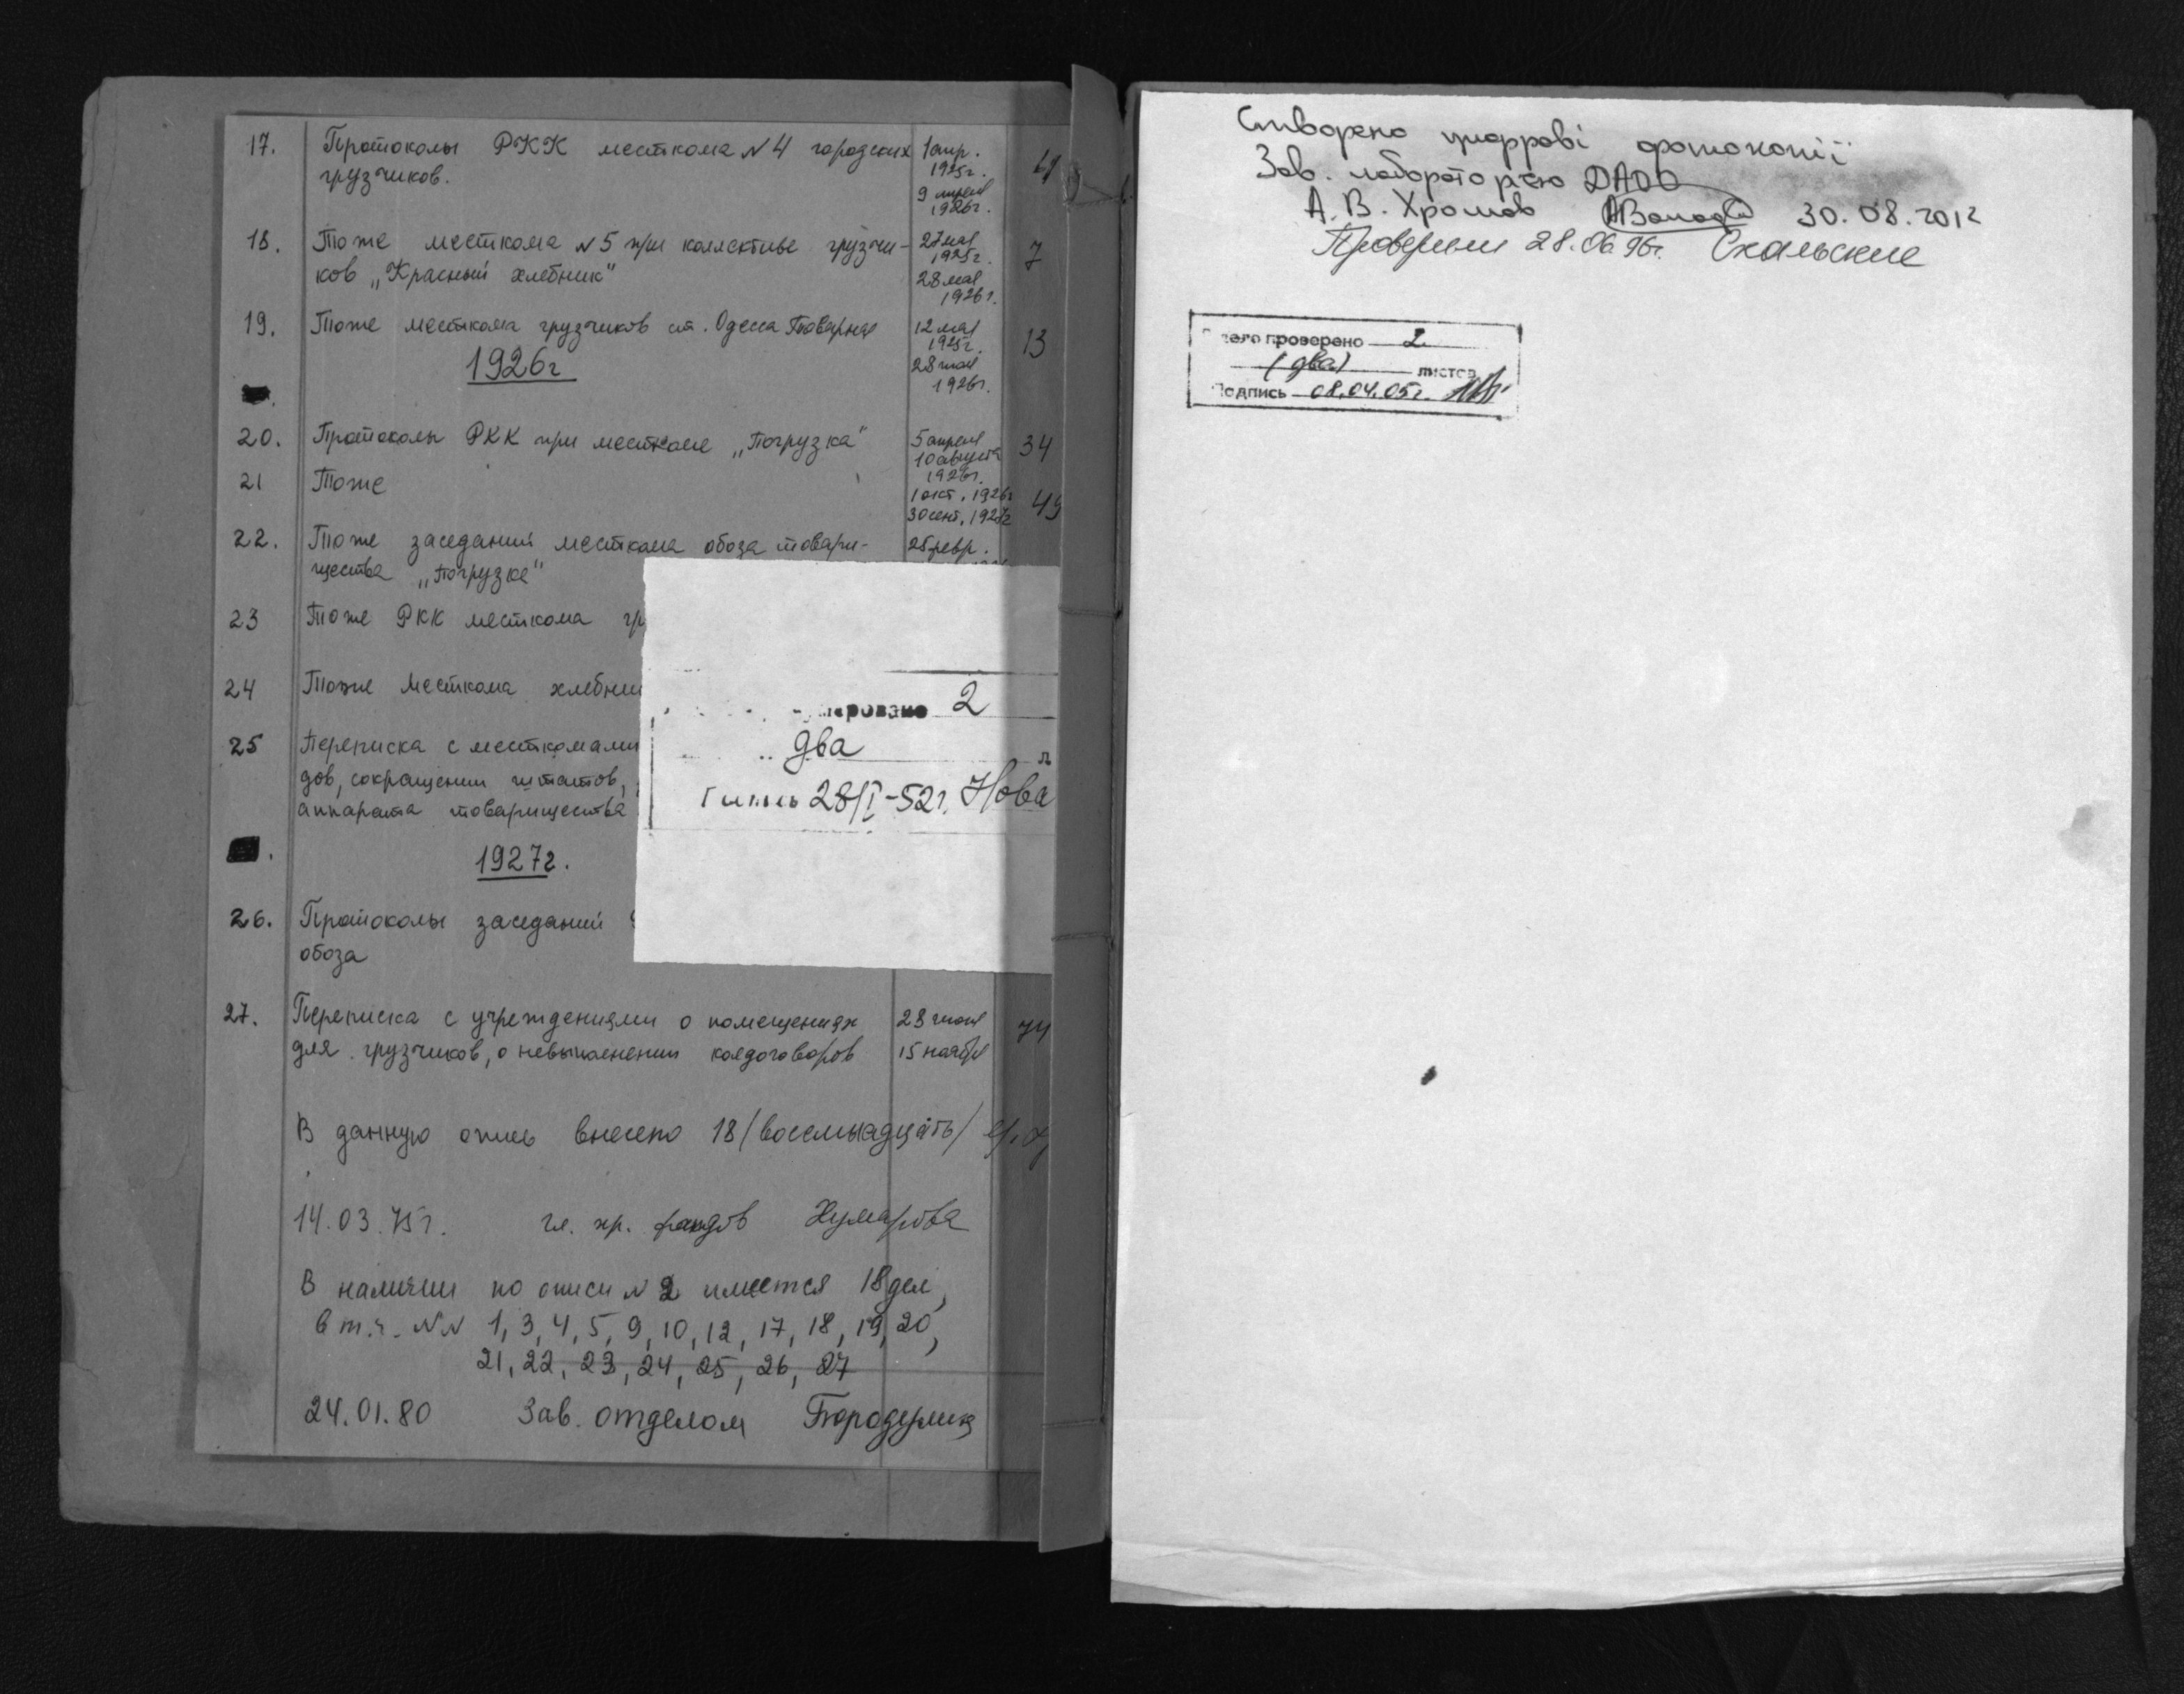 17. Протоколы РКК месткома N 4 городских 1 апр.
грузчиков. 1925г.
9 апреля
1926г.
18. Тоже месткома N 5 при коллективе грузчи- 27 мая 7
ков „Красный хлебник" 1925г.
28 мая
1926г.
19. Тоже месткома грузчиков ст. Одесса Товарная 12 мая 13
1925г.
1926г
28 мая
1926г.
20. Протоколы РКК при месткоме „Погрузка" 5 апреля 34
10 августа
1926г.
21 Тоже 1 окт. 1926г 49
30 сент. 1927г
22. Тоже заседаний месткома обоза товари- 25 февр.
щества „Погрузка"
23 Тоже РКК месткома гр
24 Тоже Месткома хлебни
25 Переписка с месткомами
дов, сокращении штатов,
аппарата товарищества
1927г.
26. Протоколы заседаний
обоза
27. Переписка с учреждениями о помещениях 28 июня 74
для грузчиков, о невыполнении колдоговоров 15 ноября
В данную опись внесено 18 /восемнадцать/ ед.
14.03.75г. гл. хр. фондов
В наличии по описи N 2 имеется 18 дел,
в т.ч. NN 1, 3, 4, 5, 9, 10, 12, 17, 18, 19, 20,
21, 22, 23, 24, 25, 26, 27
24.01.80 Зав. отделом
ировано 2
два л
28/I-52г. Нова
Створено цифрові фотокопії
Зав. лабораторією ДАОО
А. В. Хромов 30.08.2012
Проверили 28.06.96г. Скальские
проверено 2
(два) листов
Подпись 08.04.05г.